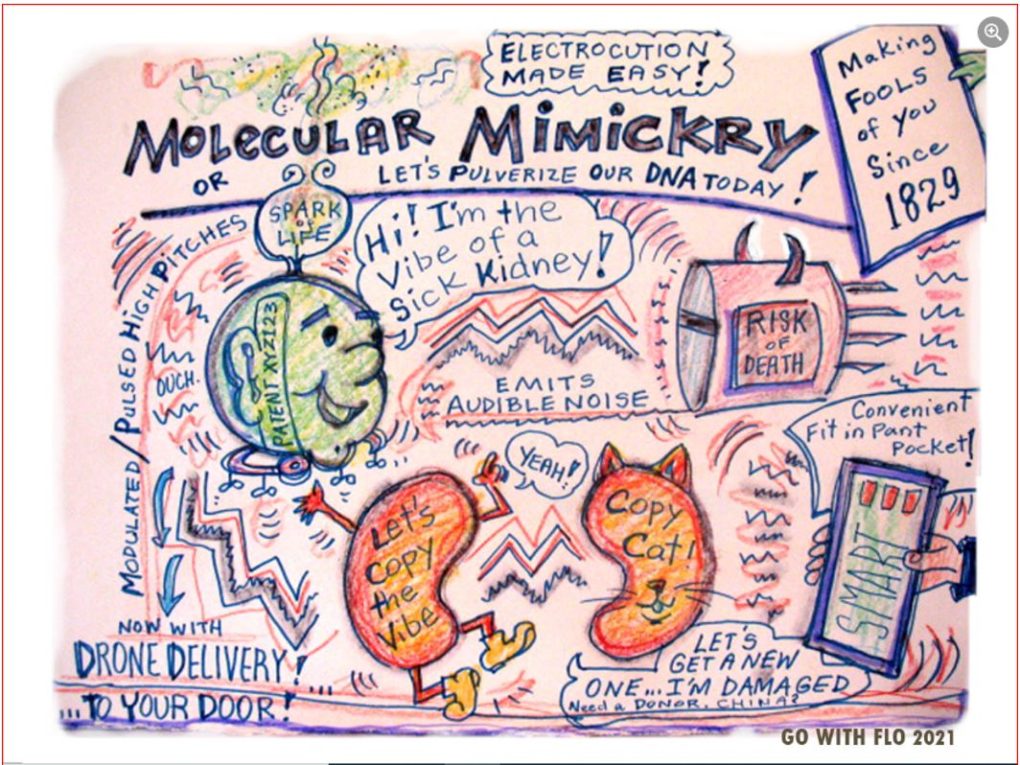 ELECTROCUTION
MADE EASY!
Making
FOOLS
of you
Since
1829
MOLECULAR MIMICKRY
OR LET'S PULVERIZE OUR DNA TODAY!
MODULATED/PULSED HIGH PITCHES
SPARK
of
LIFE
Hi! I'm the
Vibe of a
Sick Kidney!
PATENT XYZ123
OUCH.
RISK
OF
DEATH
EMITS
AUDIBLE NOISE
Convenient
Fit in Pant
Pocket!
YEAH!
Let's
Copy
the
Vibe
Copy
Cat!
SMART
NOW WITH
DRONE DELIVERY!...
...TO YOUR DOOR!
LET'S
GET A NEW
ONE... I'M DAMAGED
Need a DONOR, CHINA?
GO WITH FLO 2021